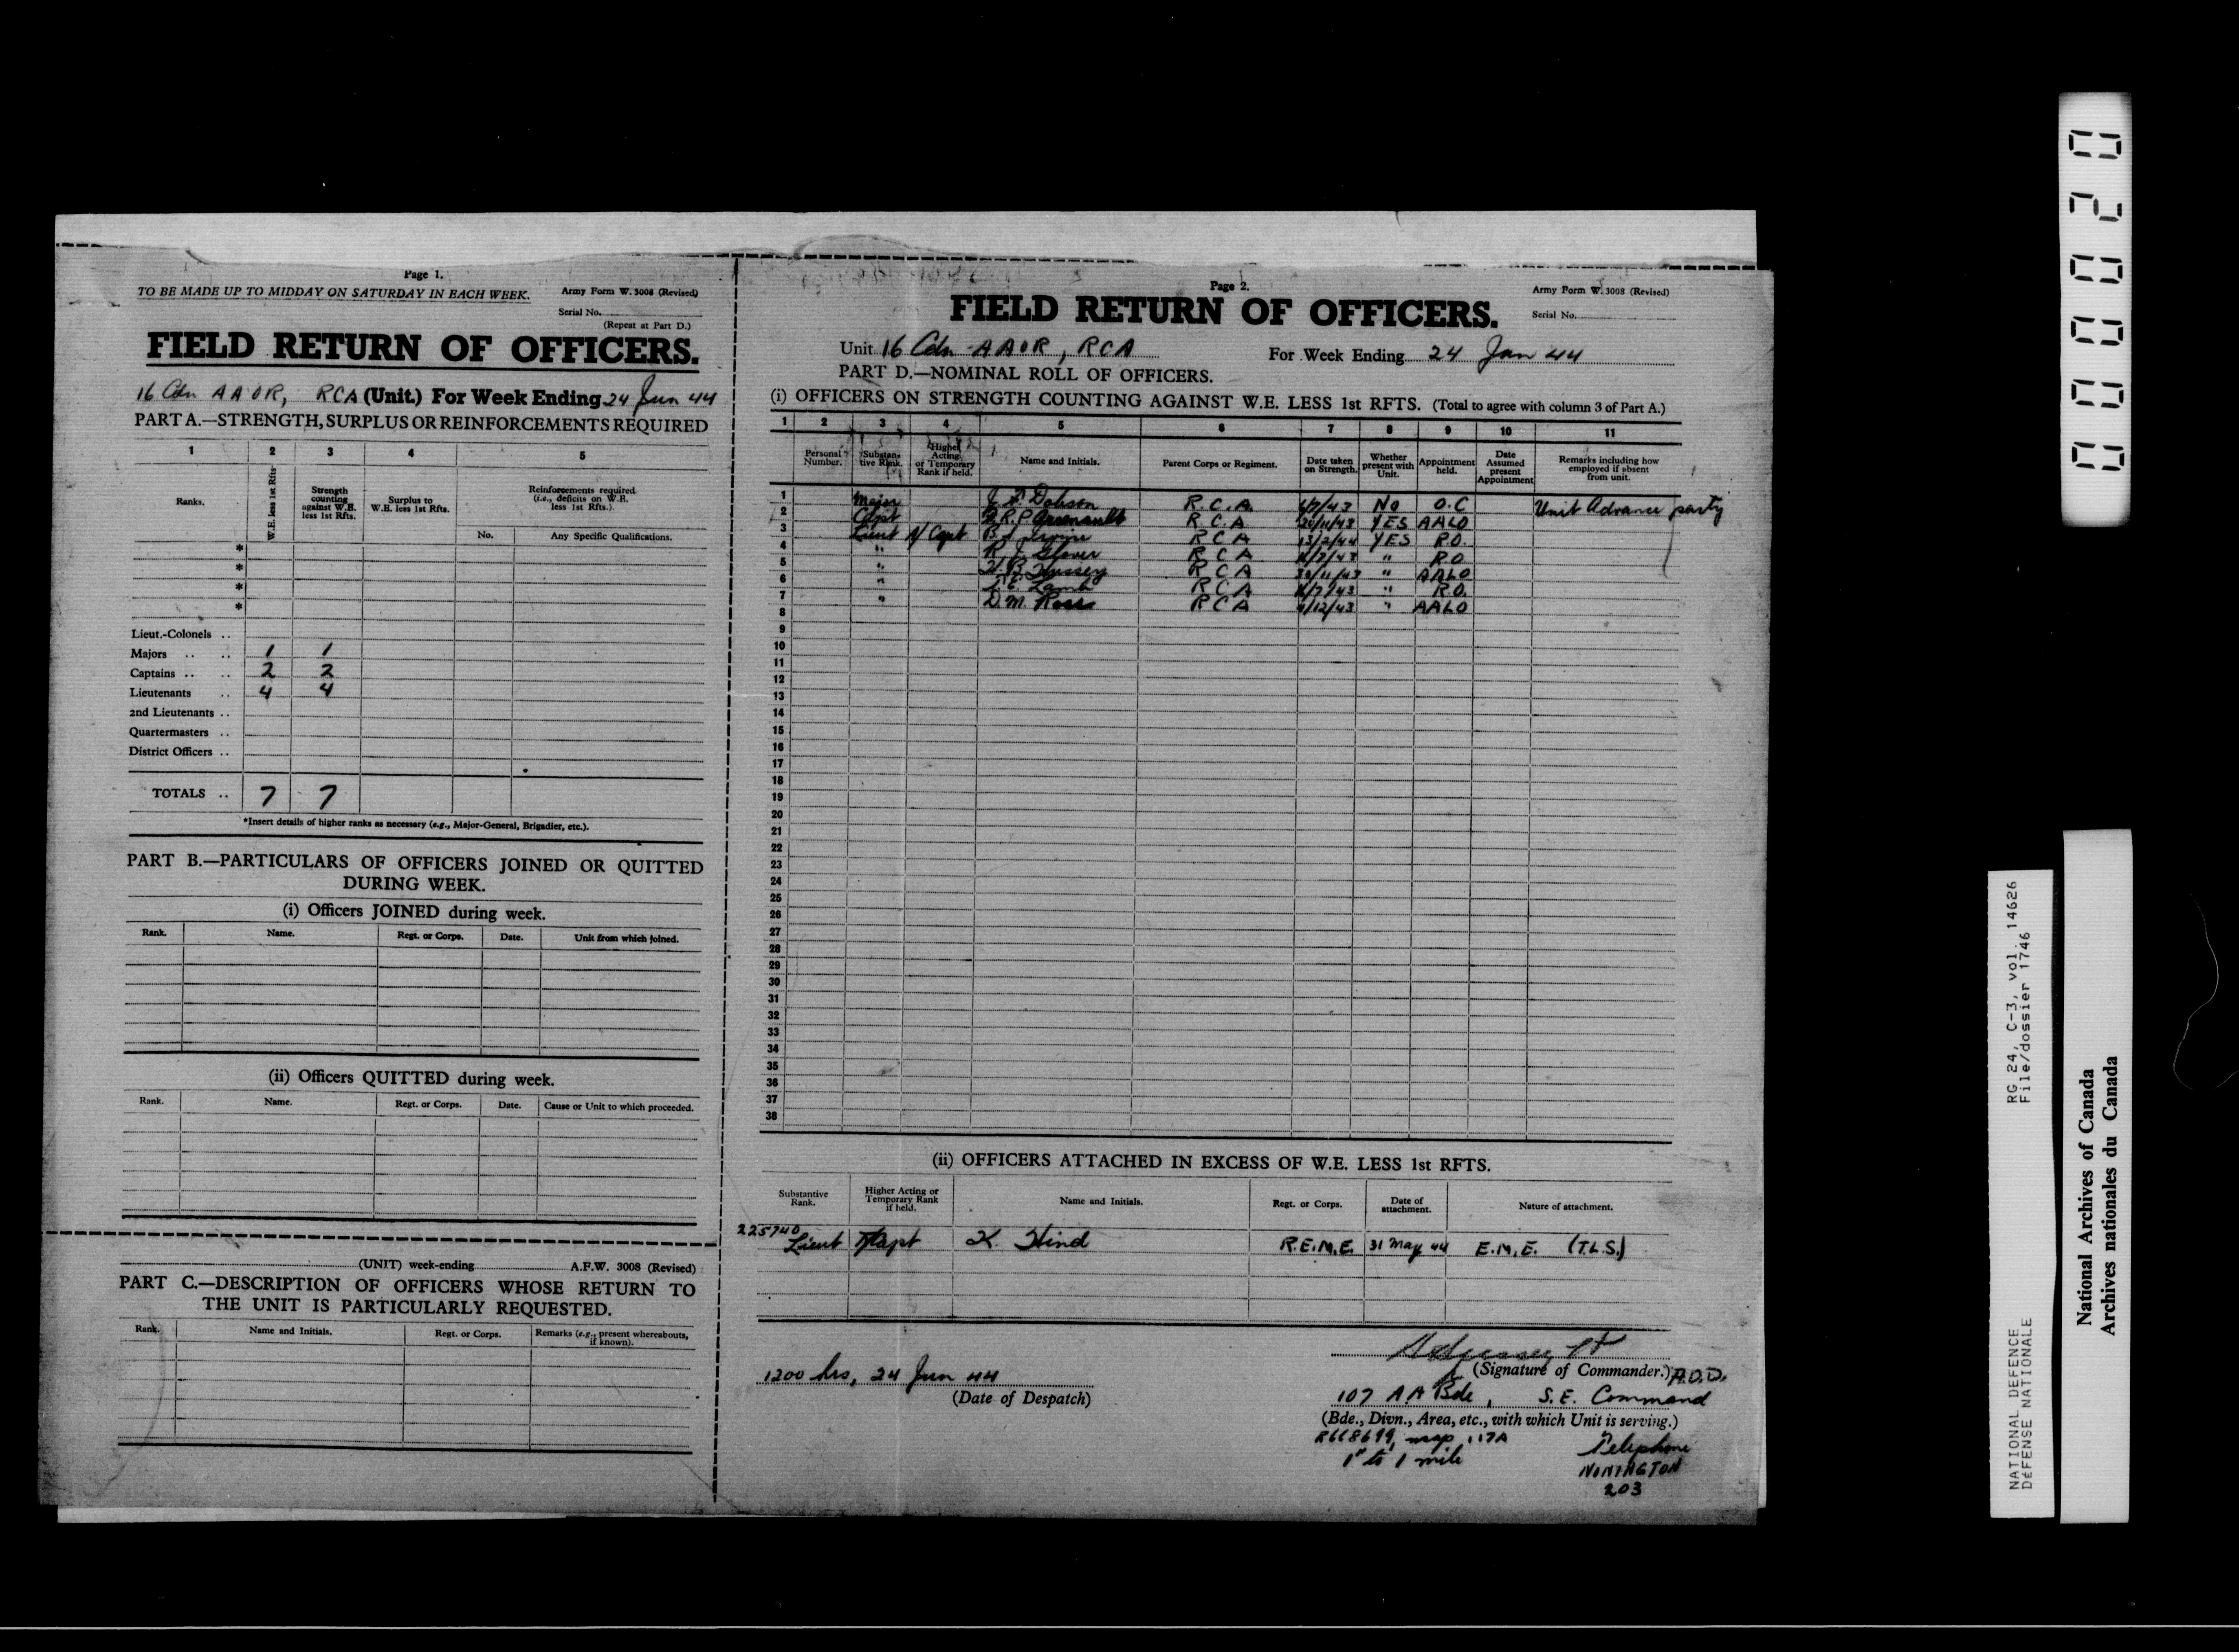 Page 1.
TO BE MADE UP TO MIDDAY ON SATURDAY IN EACH WEEK.
Army Form W. 3008 (Revised)
Serial No.
(Repeat at Part D.)
FIELD RETURN OF OFFICERS.
16 Cdn AAOR, RCA (Unit.) For Week Ending 24 Jun 44
PART A.—STRENGTH, SURPLUS OR REINFORCEMENTS REQUIRED
1 2 3 4 5
Ranks.
W.E. less 1st Rfts
Strength counting against W.E. less 1st Rfts.
Surplus to W.E. less 1st Rfts.
Reinforcements required (i.e., deficits on W.E. less 1st Rfts.).
No. Any Specific Qualifications.
*
*
*
*
Lieut.-Colonels ..
Majors .. .. 1 1
Captains .. .. 2 2
Lieutenants .. 4 4
2nd Lieutenants ..
Quartermasters ..
District Officers ..
TOTALS .. 7 7
*Insert details of higher ranks as necessary (e.g., Major-General, Brigadier, etc.).
PART B.—PARTICULARS OF OFFICERS JOINED OR QUITTED
DURING WEEK.
(i) Officers JOINED during week.
Rank. Name. Regt. or Corps. Date. Unit from which joined.
(ii) Officers QUITTED during week.
Rank. Name. Regt. or Corps. Date. Cause or Unit to which proceeded.
(UNIT) week-ending A.F.W. 3008 (Revised)
PART C.—DESCRIPTION OF OFFICERS WHOSE RETURN TO
THE UNIT IS PARTICULARLY REQUESTED.
Rank. Name and Initials. Regt. or Corps. Remarks (e.g., present whereabouts, if known).
Page 2.
Army Form W. 3008 (Revised)
FIELD RETURN OF OFFICERS.
Serial No.
Unit 16 Cdn AAOR, RCA For Week Ending 24 Jun 44
PART D.—NOMINAL ROLL OF OFFICERS.
(i) OFFICERS ON STRENGTH COUNTING AGAINST W.E. LESS 1st RFTS. (Total to agree with column 3 of Part A.)
1 2 3 4 5 6 7 8 9 10 11
Personal Number.
Substantive Rank.
Higher Acting or Temporary Rank if held.
Name and Initials.
Parent Corps or Regiment.
Date taken on Strength.
Whether present with Unit.
Appointment held.
Date Assumed present Appointment
Remarks including how employed if absent from unit.
1 Major Dobson R.C.A. 43 No O.C Unit Advance party
2 Capt R.P. Arsenault R.C.A 43 YES AALO
3 Lieut A/Capt Irvine RCA 13/2/44 YES R.O.
4 " R J Glover RCA 43 " R.O
5 " Hussey RCA 43 " AALO
6 " Lamb RCA 43 " R.O.
7 " D.M. Ross RCA 43 " AALO
8
9
10
11
12
13
14
15
16
17
18
19
20
21
22
23
24
25
26
27
28
29
30
31
32
33
34
35
36
37
38
(ii) OFFICERS ATTACHED IN EXCESS OF W.E. LESS 1st RFTS.
Substantive Rank. Higher Acting or Temporary Rank if held. Name and Initials. Regt. or Corps. Date of attachment. Nature of attachment.
225740
Lieut Capt K. Hind R.E.M.E. 31 May 44 E.M.E. (T.L.S.)
1200 hrs, 24 Jun 44
(Date of Despatch)
(Signature of Commander.)
107 AA Bde, S.E. Command
(Bde., Divn., Area, etc., with which Unit is serving.)
R668699, map 117A
1" to 1 mile
Telephone
NONINGTON
203
00020
RG 24, C-3, vol. 14626
File/dossier 1746
NATIONAL DEFENCE
DÉFENSE NATIONALE
National Archives of Canada
Archives nationales du Canada